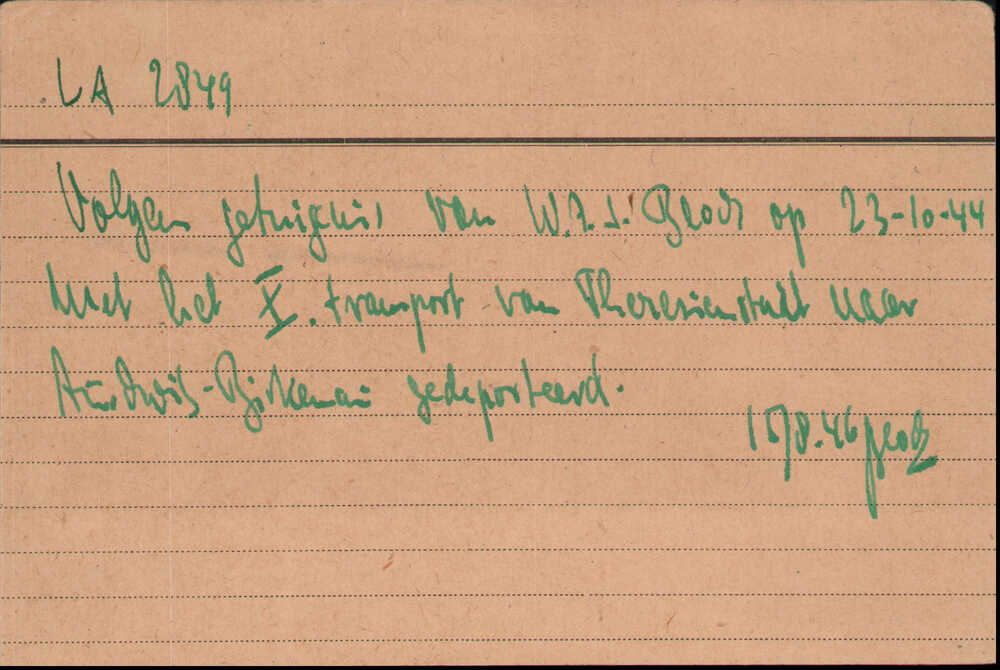 LA 2849
Volgens getuigenis van W.F.S. Bloch op 23-10-44
met het X. transport van Theresienstadt naar
Auschwitz-Birkenau gedeporteerd.
15/8.46 Bloch